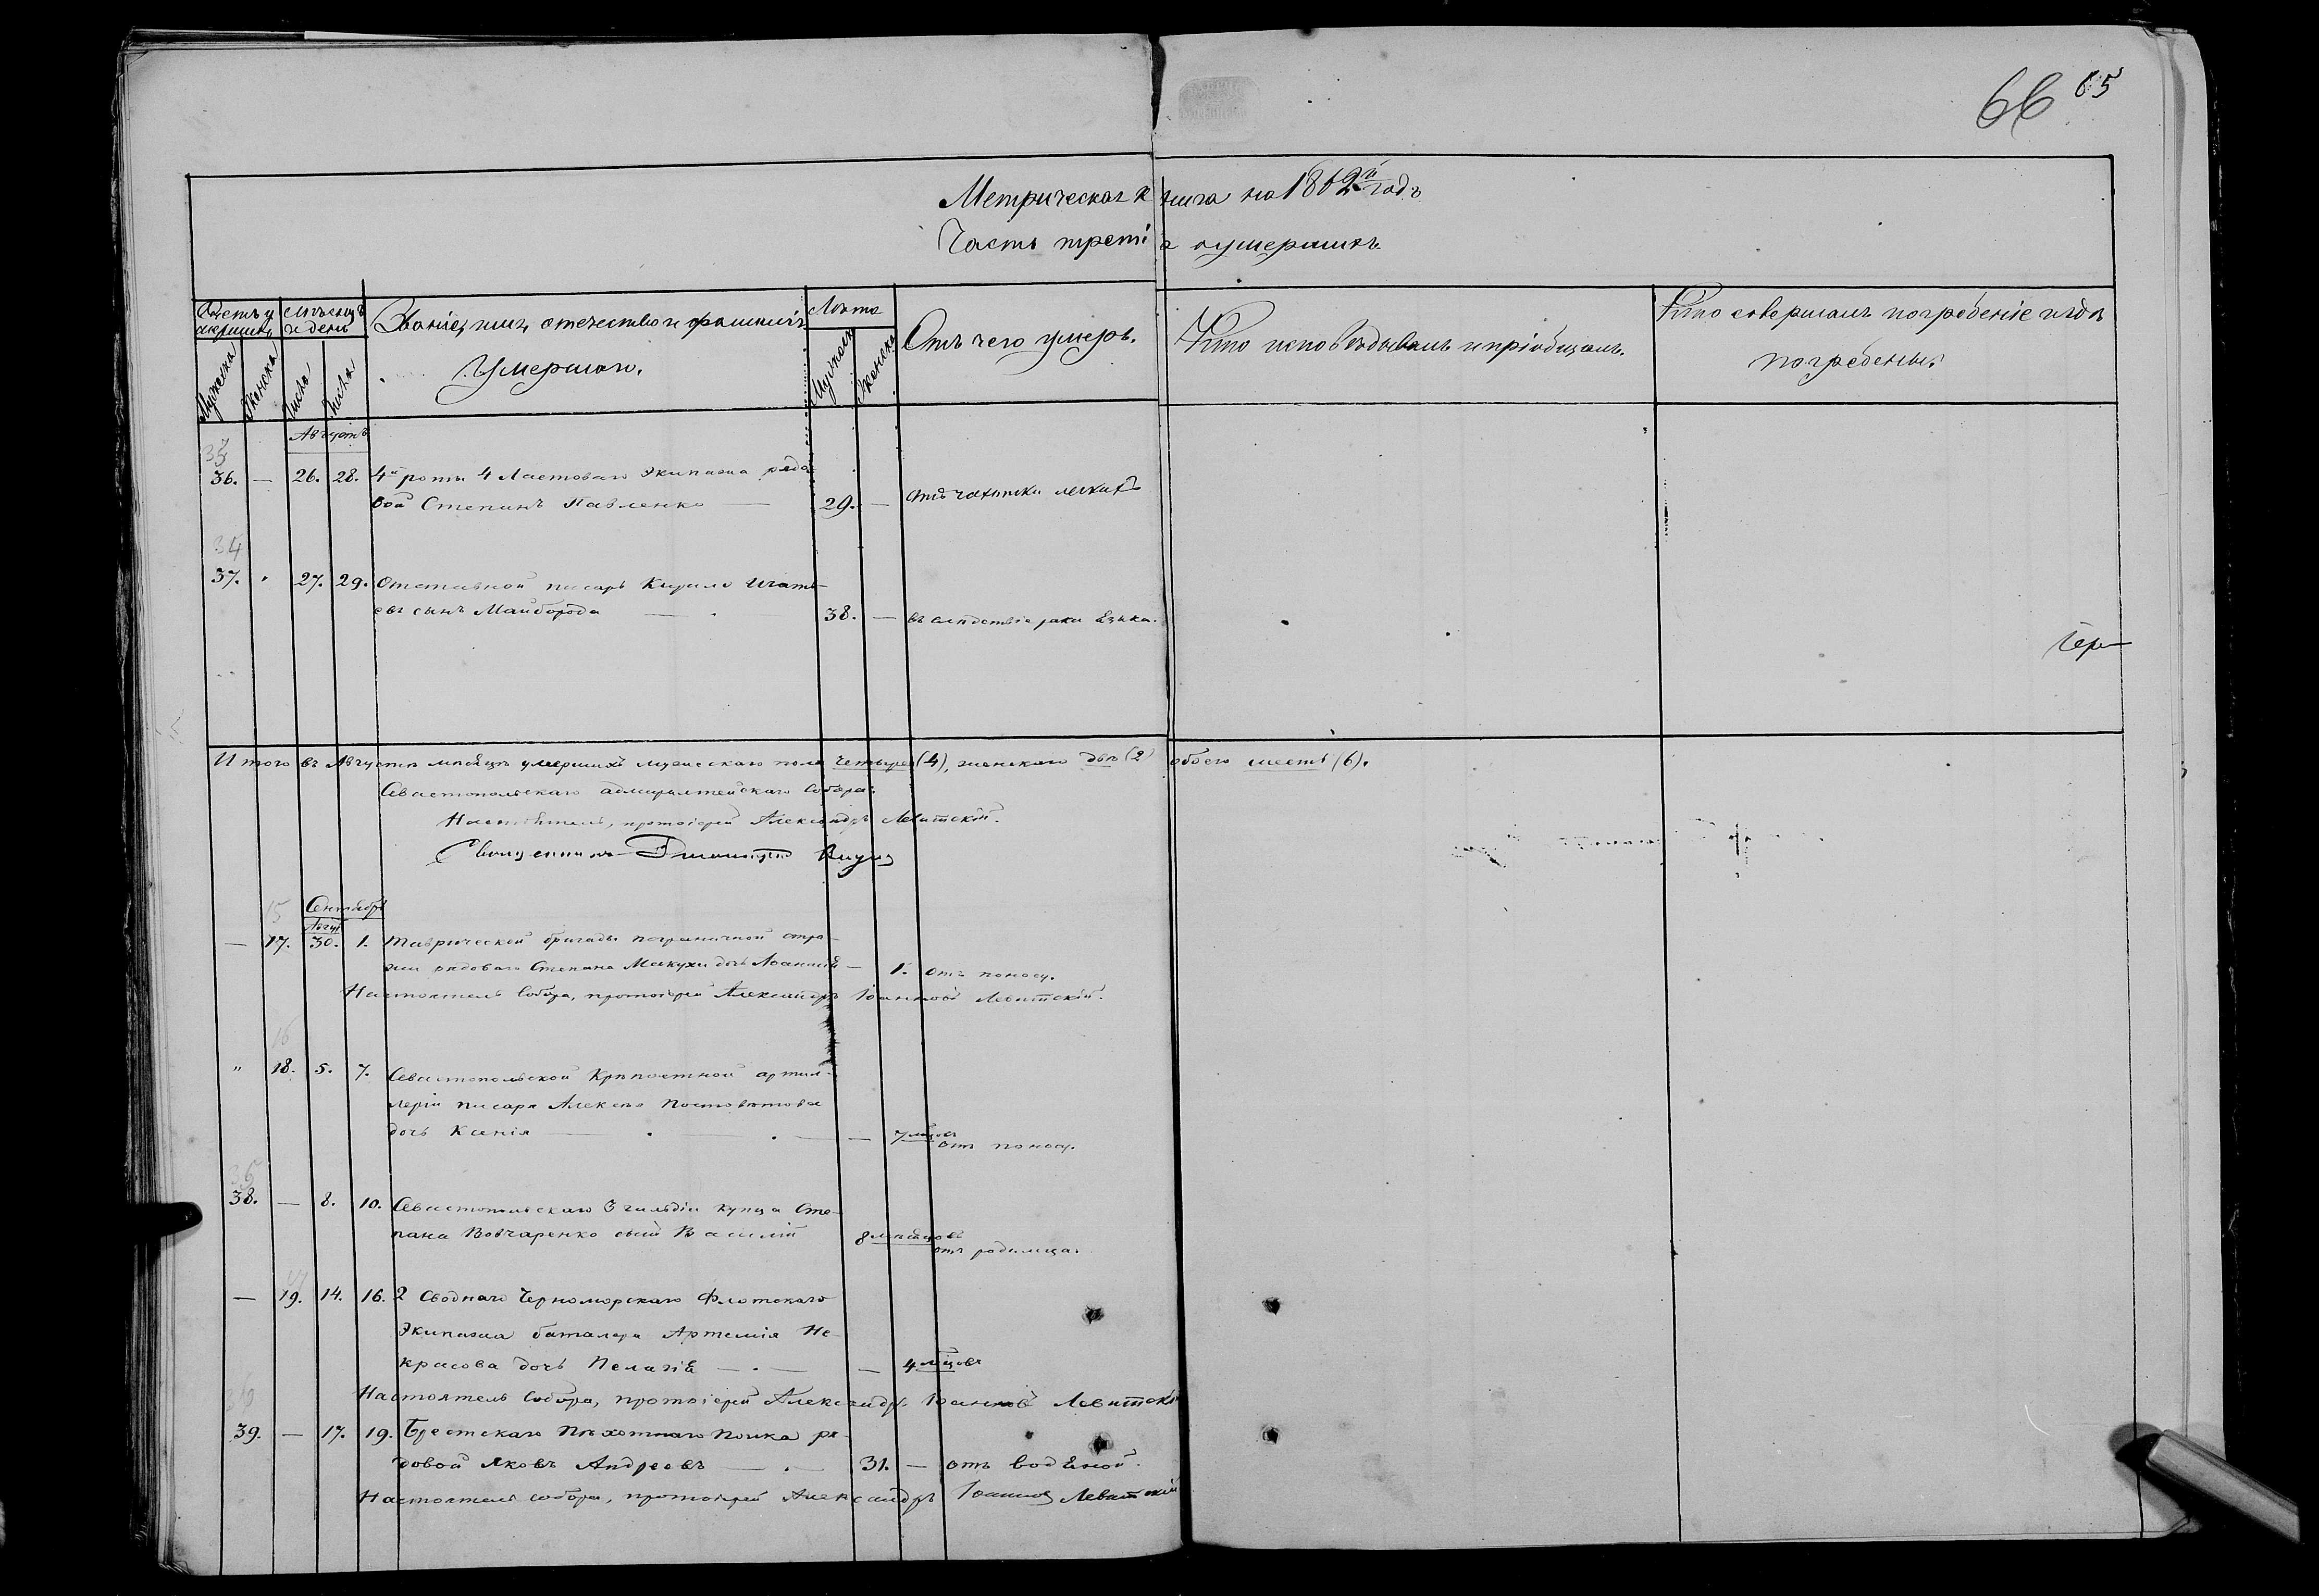 66 65
Метрическая книга на 1862й годъ
Часть третія о умершихъ.
Счетъ умершихъ
Мѣсяцъ и день
Званіе, имя, отечество и фамилія умершаго.
Лѣта
Отъ чего умеръ.
Кто исповѣдывалъ и пріобщалъ.
Кто совершалъ погребеніе и гдѣ погребены.
Мужеска
Женска
Мужеска
Женска
Августъ
35
36. — 26. 28. 4й роты 4 Ластоваго Экипажа рядо
вой Степанъ Павленко — 29. — отъ чахотки легкихъ
34
37. 27. 29. Отставной писарь Кирило Игнать-
евъ сынъ Майборода — 38. — въ слѣдствіе рака языка.
Чер
Итого въ Августѣ мѣсяцѣ умершихъ мужескаго пола четыре (4), женскаго двѣ (2) обоего шесть (6).
Севастопольскаго адмиралтейскаго Собора:
Настоятель, протоіерей Александръ Левитскій.
Священникъ
15
Сентябрь
Авгус
— 17. 30. 1. Таврической бригады пограничной стра-
жи рядоваго Степана Макухи дочь — 1. отъ поносу.
Настоятель Собора, протоіерей Александръ Іоанновъ Левитскій.
16
" 18. 5. 7. Севастопольской Крѣпостной артил-
леріи писаря Алексѣя
дочь Ксенія — — 7 мѣсцовъ отъ поносу.
35
38. — 8. 10. Севастопольскаго 3 гильдіи купца Сте-
пана Вовчаренко сынъ Василій 8 мѣсяцовъ отъ родимца.
— 19. 14. 16. 2 Своднаго Черноморскаго Флотскаго
Экипажа баталера Артемія Не-
красова дочь Пелагія — — 4 мѣсцовъ
Настоятель Собора, протоіерей Александръ Іоанновъ Левитскій
39. — 17. 19. Брестскаго Пѣхотнаго полка ря-
довой Яковъ Андреевъ — 31. — отъ водяной.
Настоятель собора, протоіерей Александръ Іоанновъ Левитскій